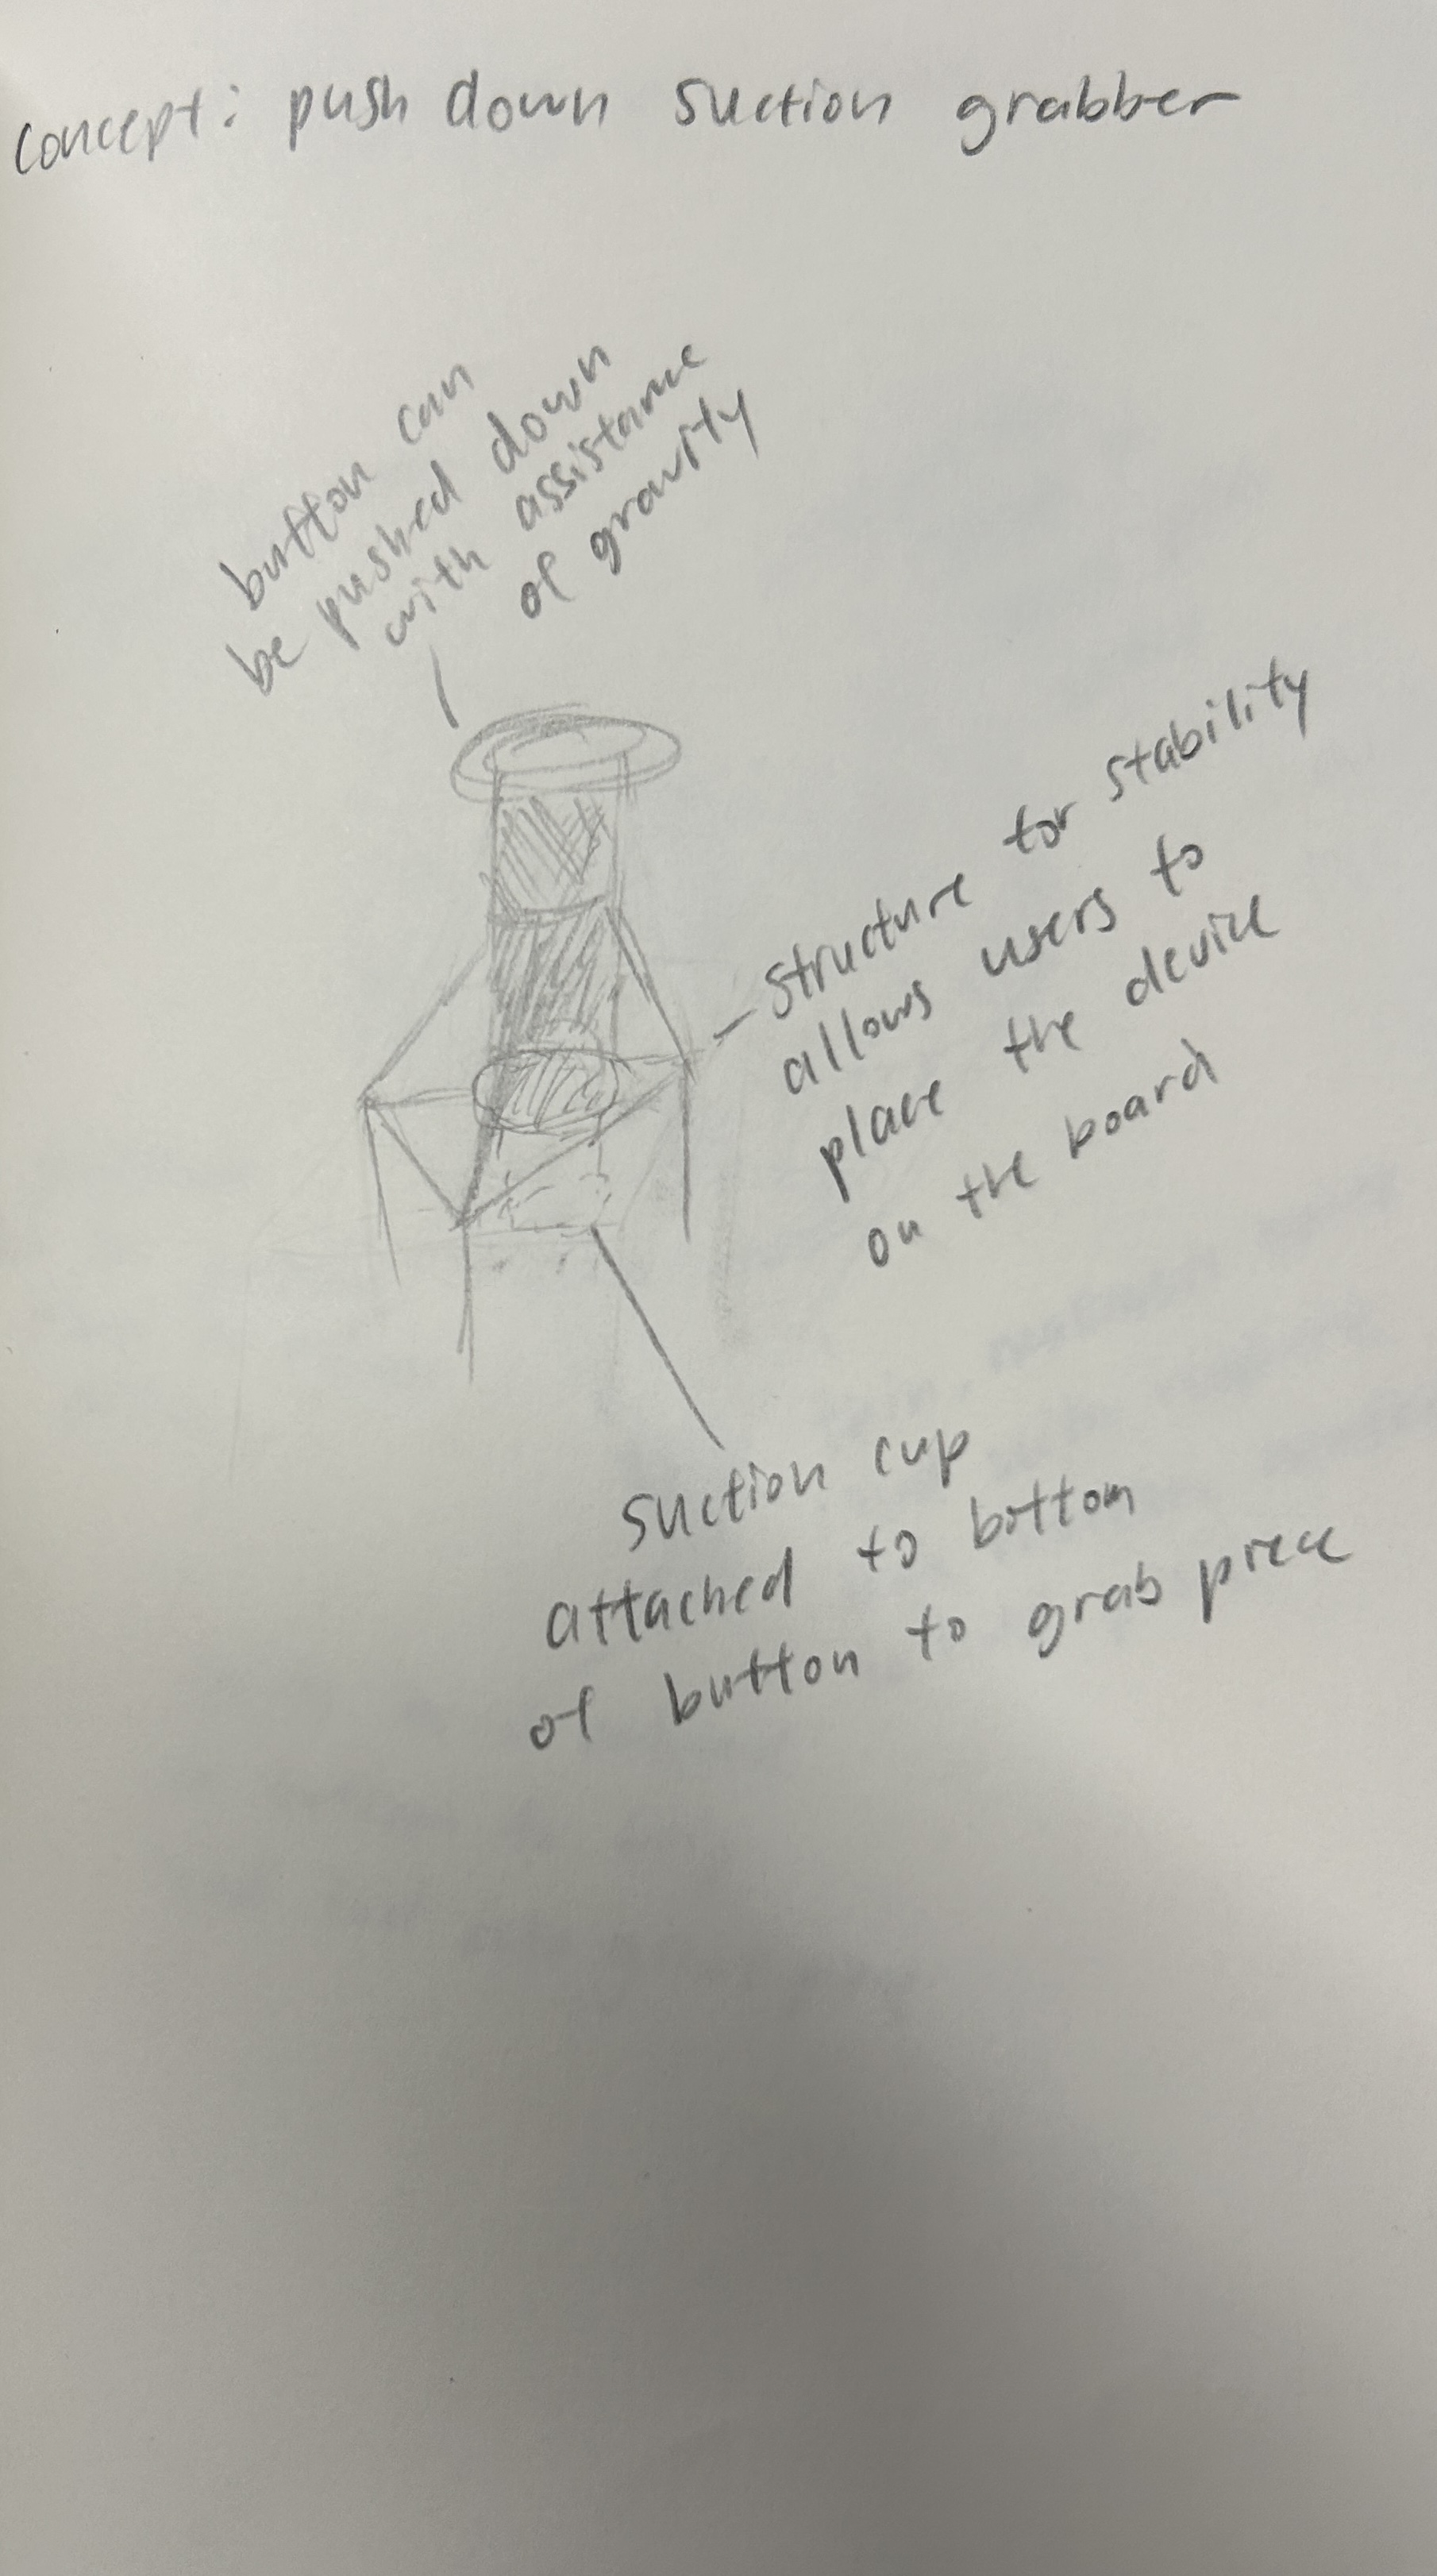 concept: push down suction grabber
button can
be pushed down
with assistance
of gravity
structure for stability
allows users to
place the device
on the board
suction cup
attached to bottom
of button to grab piece